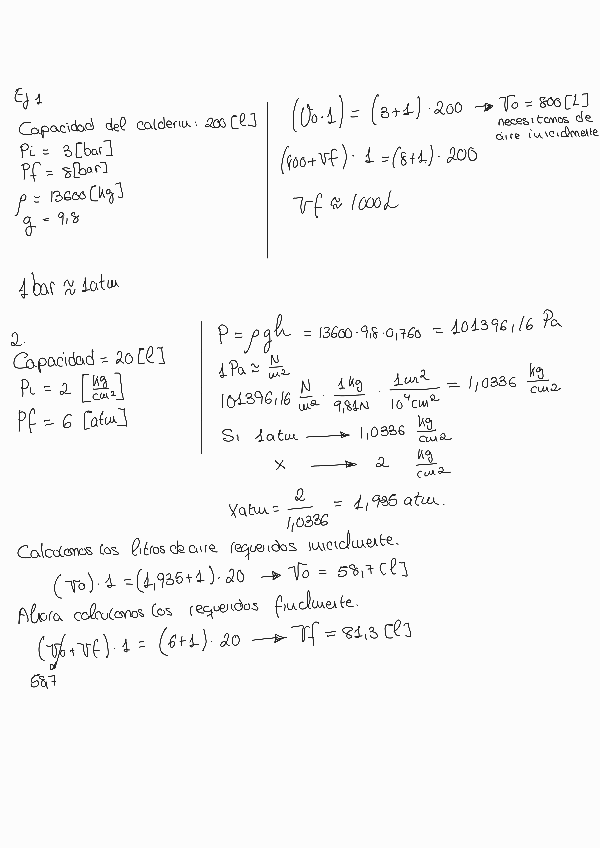 Ej 1
Capacidad del calderin: 200 [l]
Pi = 3 [bar]
Pf = 8 [bar]
ρ = 13600 [kg]
g = 9,8
(V0·1) = (3+1)·200 → V0 = 800 [L]
necesitamos de
aire inicialmente
(800+Vf)·1 = (8+1)·200
Vf ≈ 1000L
1 bar ≈ 1 atm
2.
Capacidad = 20 [l]
Pi = 2 [kg/cm2]
Pf = 6 [atm]
P = ρgh = 13600·9,8·0,760 = 101396,16 Pa
1 Pa ≈ N/m2
101396,16 N/m2 · 1 kg/9,81N · 1m2/10⁴cm2 = 1,0336 kg/cm2
Si 1atm → 1,0336 kg/cm2
x → 2 kg/cm2
Xatm = 2/1,0336 = 1,935 atm.
Calculamos los litros de aire requeridos inicialmente.
(V0)·1 = (1,935+1)·20 → V0 = 58,7 [l]
Ahora calculamos los requeridos finalmente.
(V0+Vf)·1 = (6+1)·20 → Vf = 81,3 [l]
58,7